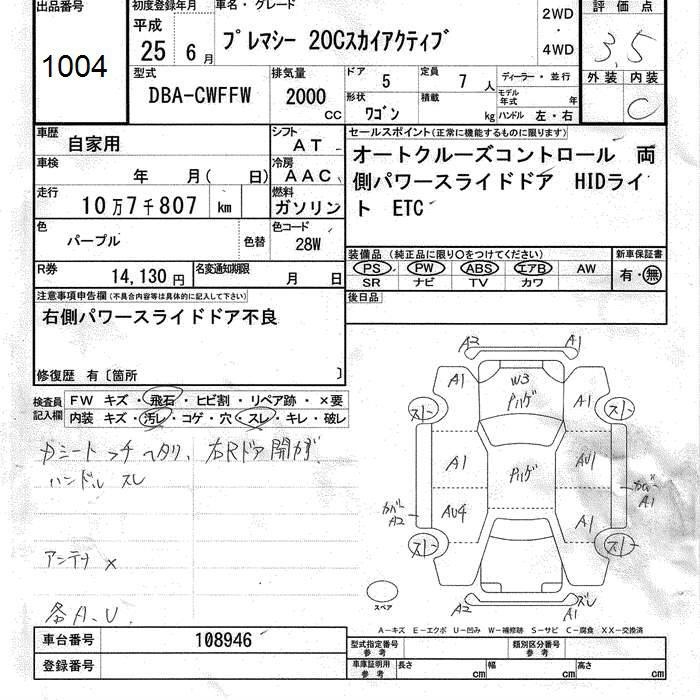 出品番号 初度登録年月 車名・グレード 評価点
1004 平成 25 6月 プレマシー 20Cスカイアクティブ 2WD・4WD 3.5
外装 内装
C
型式 排気量 ドア 5 定員 7人 ディーラー・並行
DBA-CWFFW 2000CC 形状 ワゴン 積載 kg モデル年式 年
ハンドル 左・右
車歴 自家用 シフト AT セールスポイント(正常に機能するものに限ります)
車検 年 月( 日) 冷房 AAC オートクルーズコントロール 両
走行 10万7千807 km 燃料 ガソリン 側パワースライドドア HIDライ
ト ETC
色 パープル 色替 色コード 28W
装備品(純正品に限り○をつけてください) 新車保証書
R券 14,130円 名変通知期限 月 日 PS PW ABS エアB AW 有・無
SR ナビ TV カワ
注意事項申告欄(不具合内容等は具体的に記入して下さい) 後日品
右側パワースライドドア不良
修復歴 有〔箇所 〕
検査員記入欄 FW キズ・飛石・ヒビ割・リペア跡・×要
内装 キズ・汚レ・コゲ・穴・スレ・キレ・破レ
ヘタリ、右Rドア開かず
ハンドル スレ
アンテナ ×
各A、U
A2 A1
A1 W3 A1
ハゲ
スト スト
A1 ハゲ AU1
カバー A2 AU4 A1 A1
スト スト
スペア A2 A1 ズレ
A-キズ E-エクボ U-凹み W-補修跡 S-サビ C-腐食 XX-交換済
車台番号 108946 型式指定番号 参考 類別区分番号 参考
登録番号 車庫証明用 参考 長さ cm 幅 cm 高さ cm